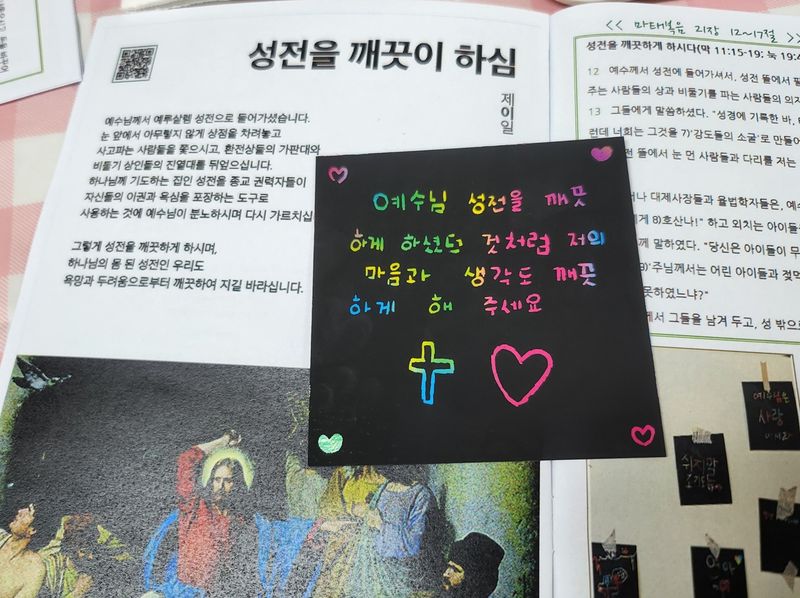 성전을 깨끗이 하심
제이일
예수님께서 예루살렘 성전으로 들어가셨습니다.
눈 앞에서 아무렇지 않게 상점을 차려놓고
사고파는 사람들을 쫓으시고, 환전상들의 가판대와
비둘기 상인들의 진열대를 뒤엎으십니다.
하나님께 기도하는 집인 성전을 종교 권력자들이
자신들의 이권과 욕심을 포장하는 도구로
사용하는 것에 예수님이 분노하시며 다시 가르치십
그렇게 성전을 깨끗하게 하시며,
하나님의 몸 된 성전인 우리도
욕망과 두려움으로부터 깨끗하여 지길 바라십니다.
예수님 성전을 깨끗
하게 하셨던 것처럼 저의
마음과 생각도 깨끗
하게 해 주세요
<< 마태복음 21장 12~17절 >>
성전을 깨끗하게 하시다(막 11:15-19; 눅 19:4
12 예수께서 성전에 들어가셔서, 성전 뜰에서 팔
주는 사람들의 상과 비둘기를 파는 사람들의 의자
13 그들에게 말씀하셨다. "성경에 기록한 바,
런데 너희는 그것을 7)'강도들의 소굴'로 만들어
뜰에서 눈 먼 사람들과 다리를 저는
대제사장들과 율법학자들은, 예수
8)호산나!" 하고 외치는 아이들
말하였다. "당신은 아이들이 무
9)'주님께서는 어린 아이들과 젖먹
못하였느냐?"
그들을 남겨 두고, 성 밖으
예수님은
사랑
쉬지말